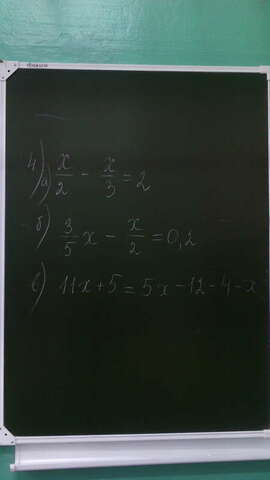 4) а) x/2 - x/3 = 2
б) 3/5 x - x/2 = 0,2
в) 11x + 5 = 5x - 12 - 4 - x